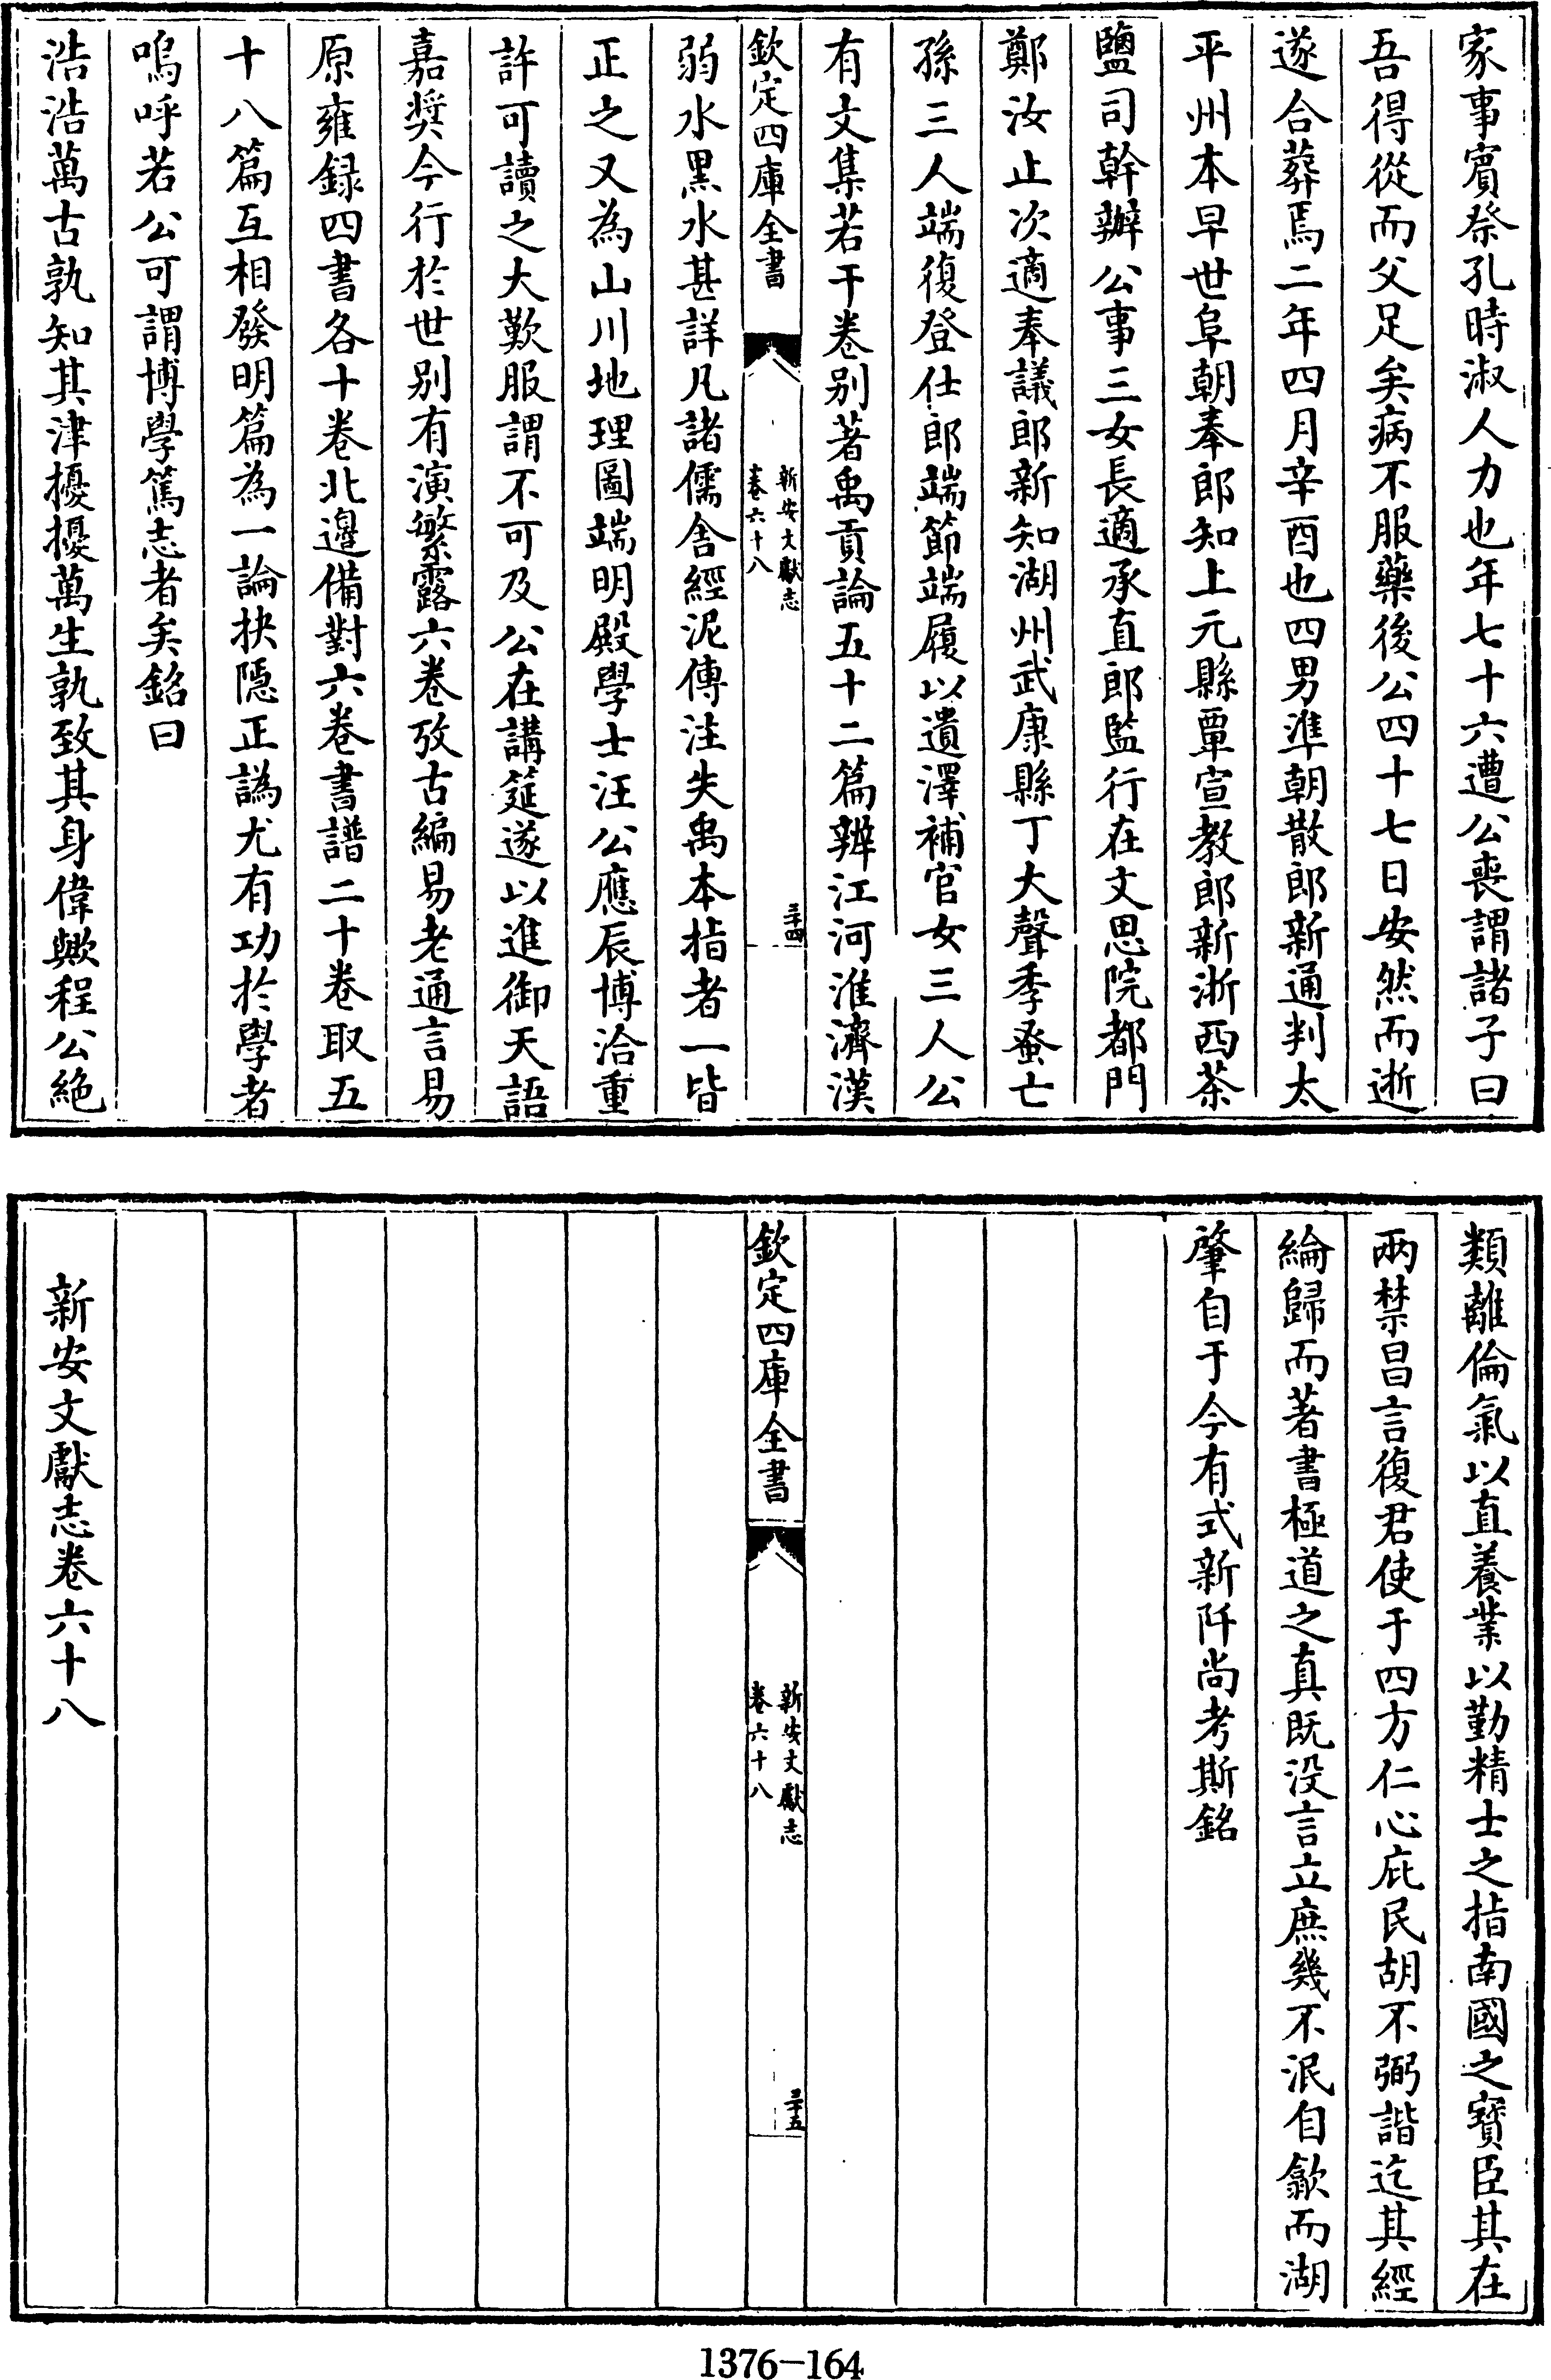 家事賓祭孔時淑人力也年七十六遭公喪謂諸子曰
吾得從而父足矣病不服藥後公四十七日安然而逝
遂合葬焉二年四月辛酉也四男準朝散郎新通判太
平州本早世阜朝奉郎知上元縣覃宣教郎新浙西茶
鹽司幹辦公事三女長適承直郎監行在文思院都門
鄭汝止次適奉議郎新知湖州武康縣丁大聲季蚤亡
孫三人端復登仕郎端節端履以遺澤補官女三人公
有文集若干卷别著禹貢論五十二篇辨江河淮濟漢
欽定四庫全書
新安文獻志
卷六十八
三十四
弱水黑水甚詳凡諸儒舍經泥傳注失禹本指者一皆
正之又為山川地理圖端明殿學士汪公應辰博洽重
許可讀之大歎服謂不可及公在講筵遂以進御天語
嘉奬今行於世别有演繁露六卷攷古編易老通言易
原雍録四書各十卷北邊備對六卷書譜二十卷取五
十八篇互相發明篇為一論抉隱正譌尤有功於學者
嗚呼若公可謂博學篤志者矣銘曰
浩浩萬古孰知其津擾擾萬生孰致其身偉歟程公絶
類離倫氣以直養業以勤精士之指南國之寶臣其在
兩禁昌言復君使于四方仁心庇民胡不弼諧迄其經
綸歸而著書極道之真既没言立庶幾不泯自歙而湖
肇自于今有式新阡尚考斯銘
欽定四庫全書
新安文獻志
卷六十八
三十五
新安文獻志卷六十八
1376-164